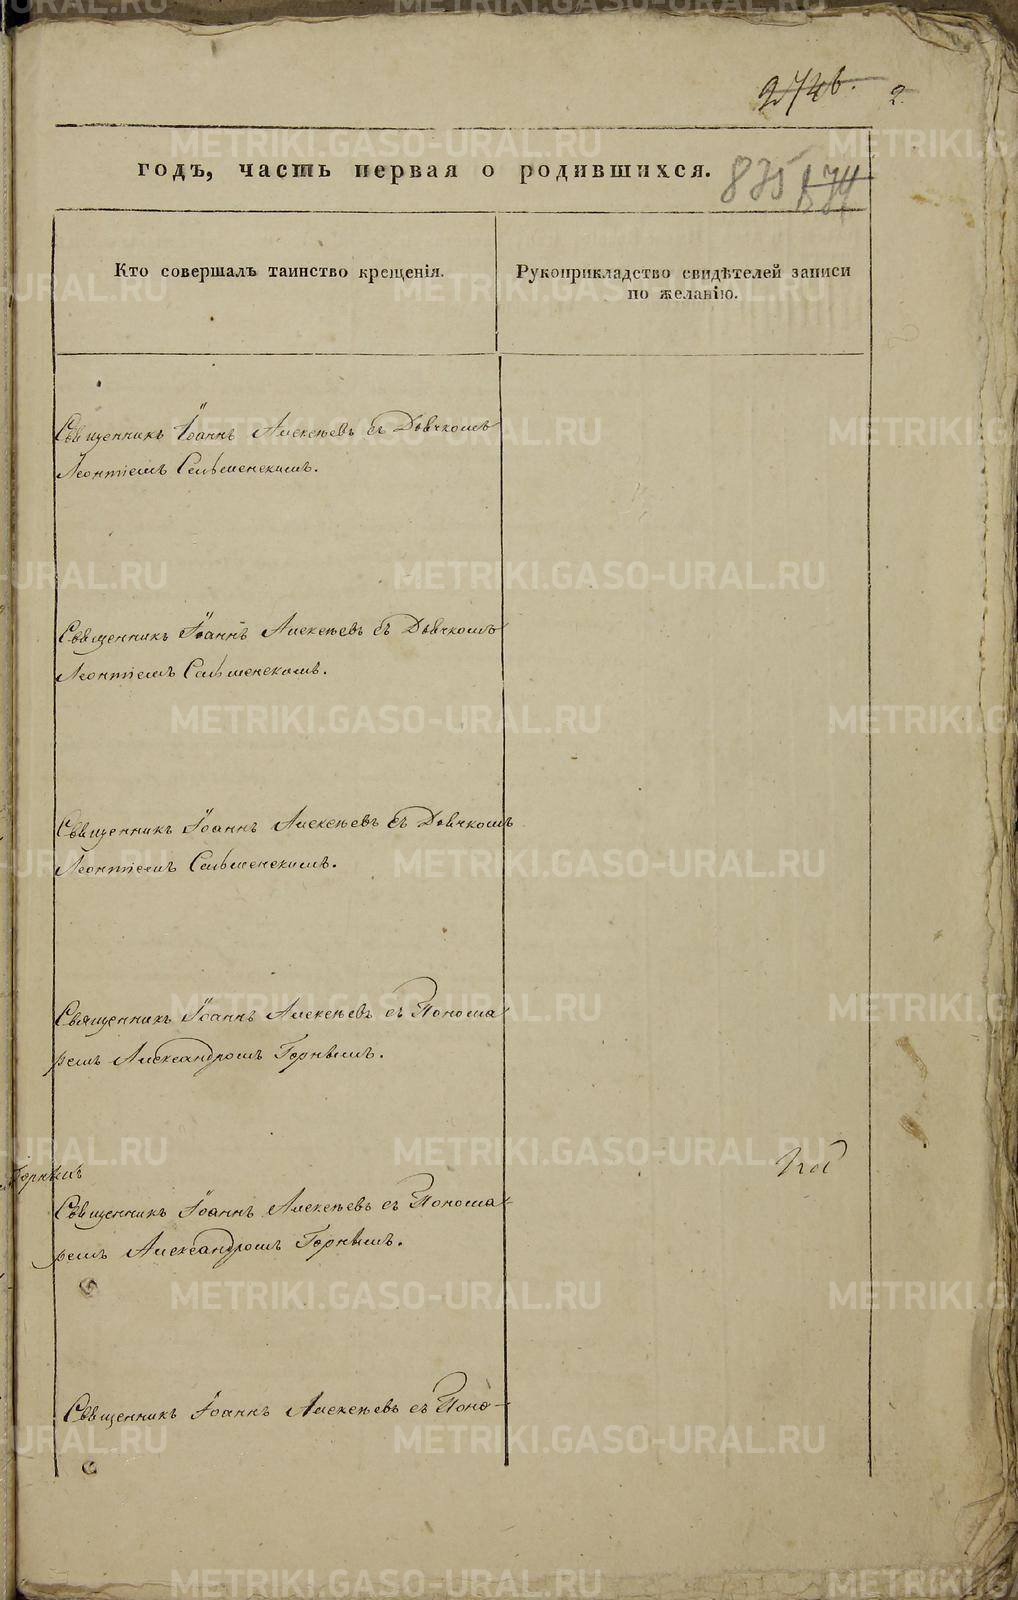 2.
годъ, часть первая о родившихся. 875
Кто совершалъ таинство крещенія.
Рукоприкладство свидѣтелей записи
по желанію.
Священникъ Іоаннъ Алексѣевъ съ Дьячкомъ
Леонтіемъ Сельменскимъ.
Священникъ Іоаннъ Алексѣевъ съ Дьячкомъ
Леонтіемъ Сельменскимъ.
Священникъ Іоаннъ Алексѣевъ съ Дьячкомъ
Леонтіемъ Сельменскимъ.
Священникъ Іоаннъ Алексѣевъ съ Понома
ремъ Александромъ Горнымъ.
Горнымъ
Священникъ Іоаннъ Алексѣевъ съ Понома
ремъ Александромъ Горнымъ.
Священникъ Іоаннъ Алексѣевъ съ Поно-
METRIKI.GASO-URAL.RU